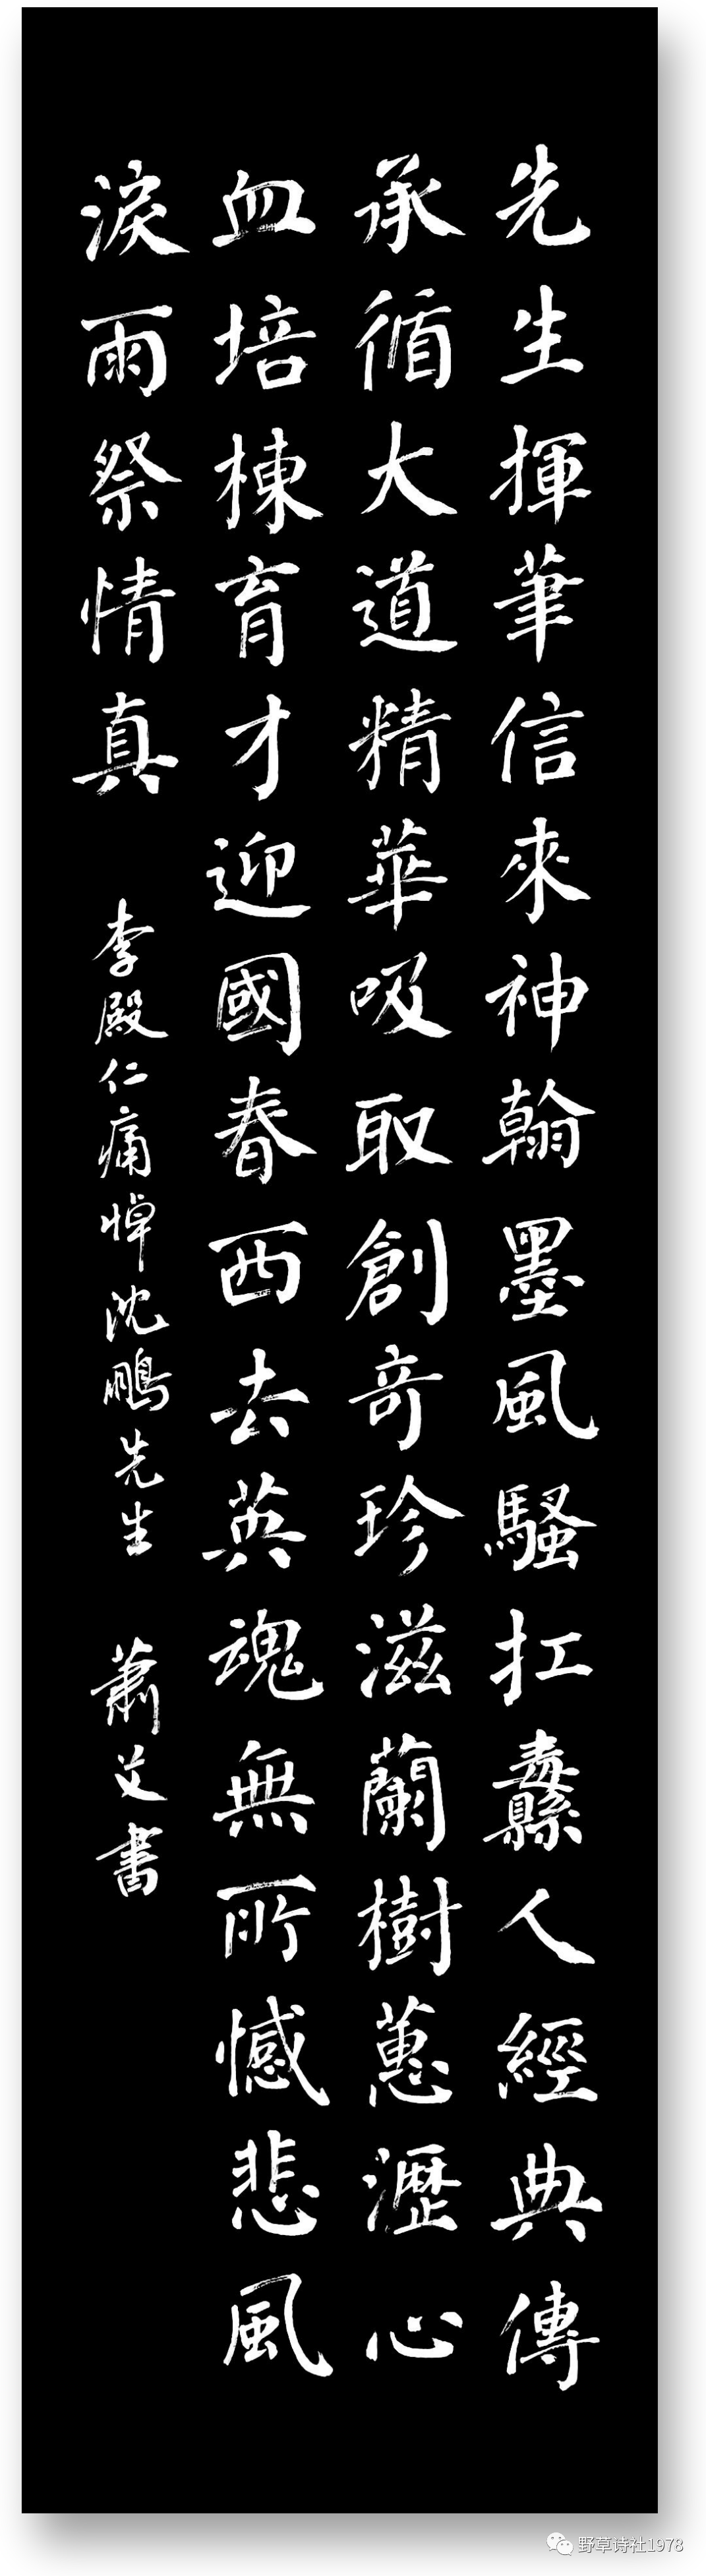 先生揮筆信來神翰墨風騷扛纛人經典傳
承循大道精華吸取創奇珍滋蘭樹蕙瀝心
血培棟育才迎國春西去英魂無所憾悲風
淚雨祭情真
李殿仁痛悼沈鵬先生
蕭艾書
野草诗社1978